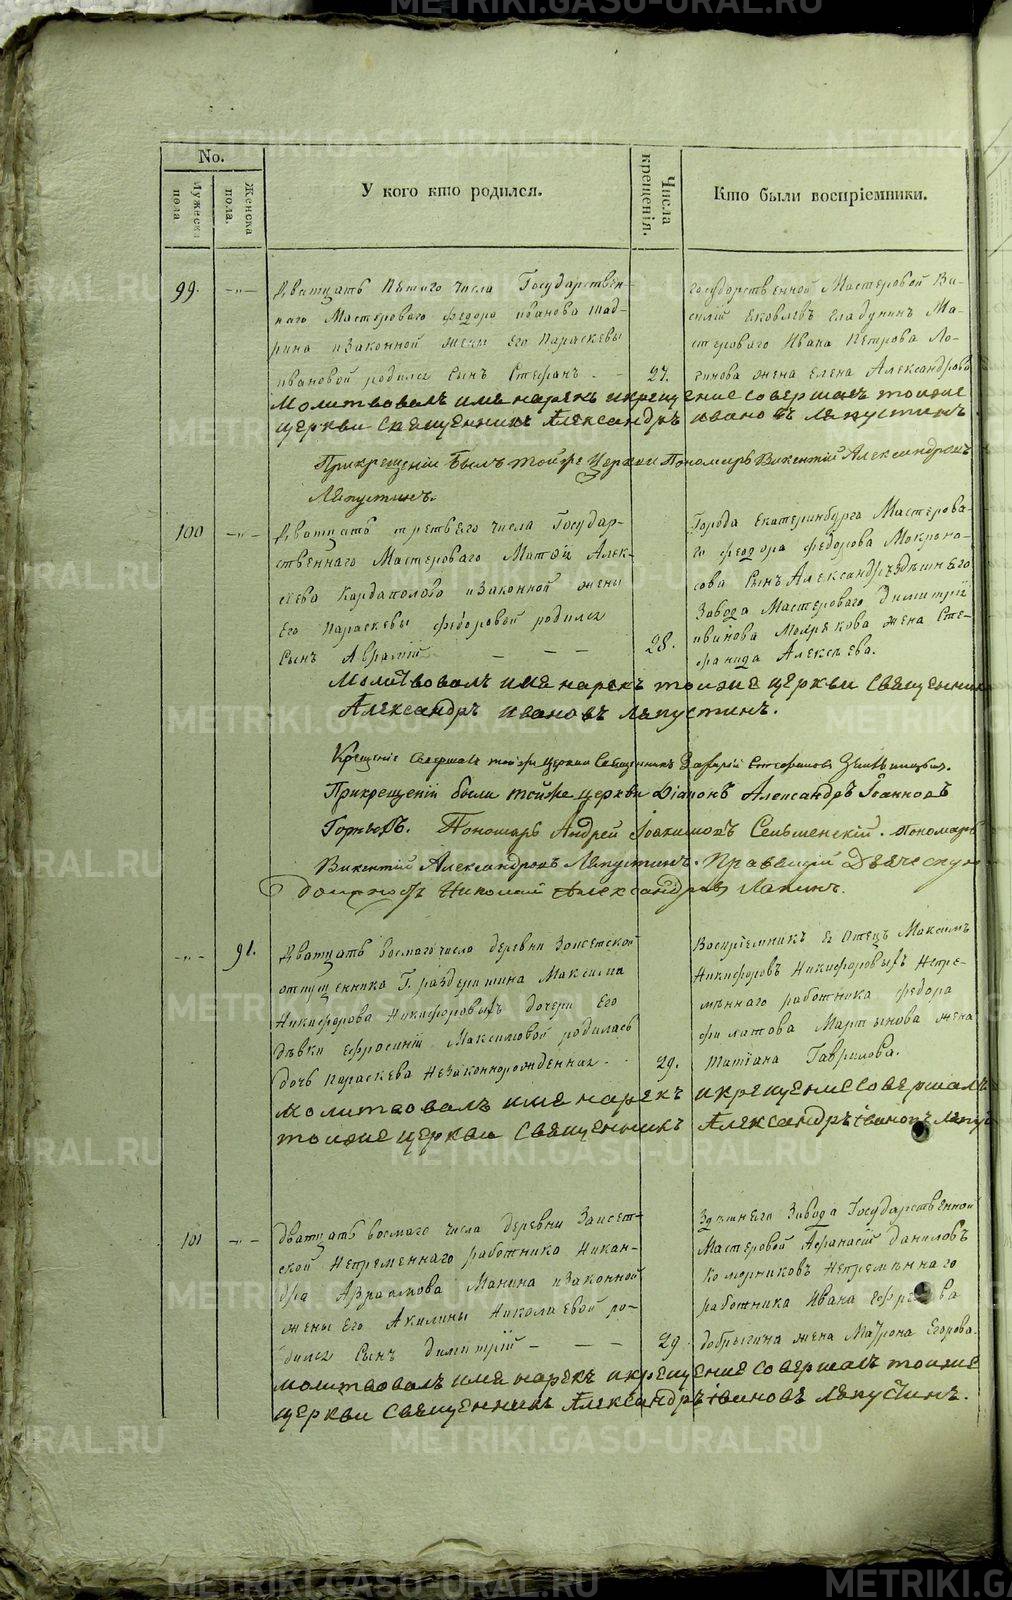 METRIKI.GASO-URAL.RU
No.
Мужеска пола
Женска пола.
У кого кто родился.
Числа крещенія.
Кто были воспріемники.
99.
Дватцать пятаго числа Государствен-
наго Мастероваго Федора иванова Шад-
рина изаконной жены Его Параскевы
ивановой родился Сынъ Стефанъ.
27.
Государственной Мастеровой Ва-
силій Яковлевъ Гладунинъ Ма-
стероваго Ивана Петрова Ло-
гинова жена Елена Александрова
Молитвовалъ имя нарекъ икрещение совершалъ тоиже
церкви священникъ Александръ ивановъ Ляпустинъ
Прикрещеніи былъ тойже Церкви Пономарь Викентій Александровъ
Ляпустинъ.
100
Дватцать третьего числа Государ-
ственнаго Мастероваго Матфія Алек-
сеева Кардаполова изаконной жены
Его Параскевы федоровой родился
Сынъ Аврамій
28.
Города Екатеринбурга Мастерова-
го феодора федорова Мокроно-
сова Сынъ Александръ здешнего
Завода Мастероваго димитрія
жена Сте-
фанида Алексеева.
Молитвовалъ имя нарекъ тоиже церкви священникъ
Александръ ивановъ Ляпустинъ.
Крещеніе совершалъ тойже церкви Священникъ Захарій Стефановъ
Прикрещеніи были тойже церкви Діаконъ Александръ Іоанновъ
Горныхъ. Пономарь Андрей Іоакимовъ Сельменскій. пономарь
Викентій Александровъ Ляпустинъ. Правящій Дьяческую
должность Николай Александровъ Лапинъ.
91.
Дватцать восмаго числа деревни Заисетской
отпущенника Г. раздеришина Максима
Никифорова Никифоровыхъ дочери Его
Девки Ефросинii Максимовой родилась
дочь Параскева незаконнорожденная.
29.
Воспріемникъ Ея Отецъ Максимъ
Никифоровъ Никифоровыхъ Непре-
меннаго работника Федора
филатова Мартынова жена
Татіана Гаврилова.
Молитвовалъ имя нарекъ икрещение совершалъ
тоиже церкви священникъ Александръ івановъ Ляпус
101
Дватцать восмаго числа деревни Заисет-
ской Непременнаго работника Никан-
дра Авраамова Манина изаконной
жены Его Акилины Николаевой ро-
дился Сынъ димитрій
29.
Здешнего Завода Государственной
Мастеровой Афанасій даниловъ
Коморниковъ Непременнаго
работника Ивана Ефремова
добрыгина жена Матрона Егорова
Молитвовалъ имя нарекъ икрещение совершалъ тоиже
церкви священникъ Александръ івановъ Ляпустинъ.